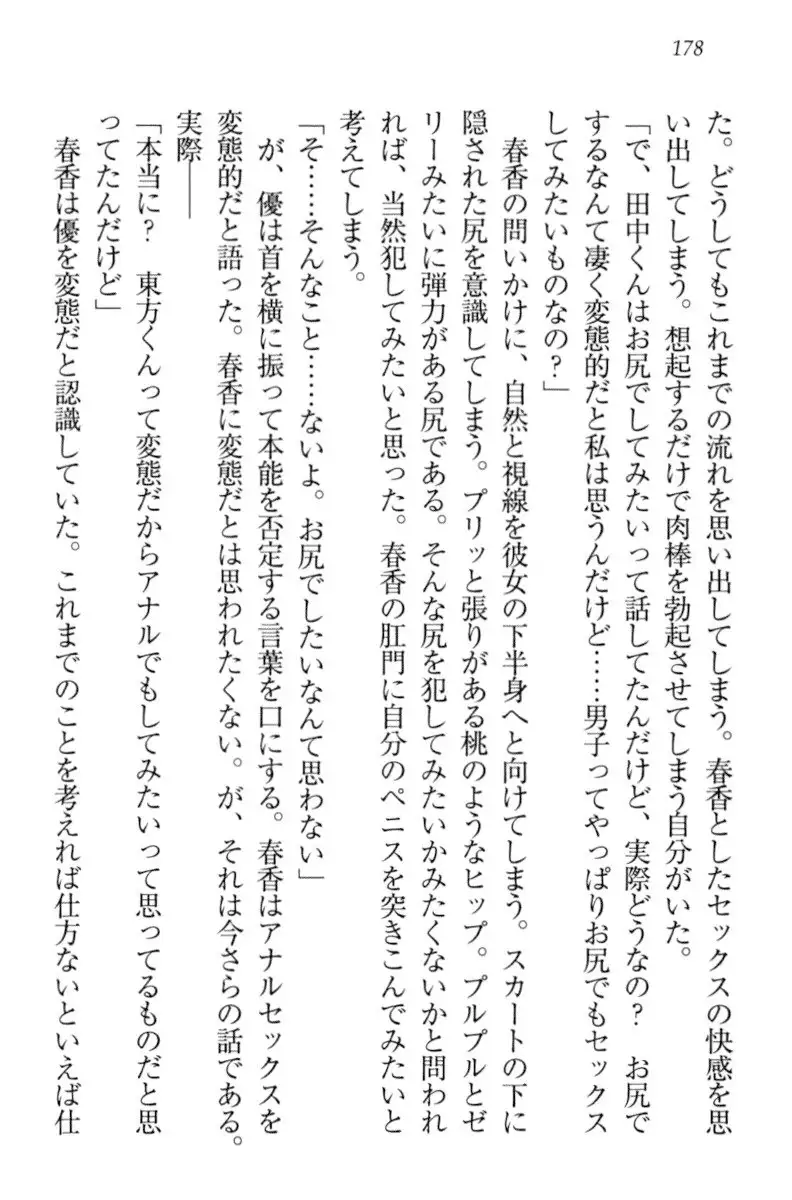 178
た。どうしてもこれまでの流れを思い出してしまう。春香としたセックスの快感を思
い出してしまう。想起するだけで肉棒を勃起させてしまう自分がいた。
「で、田中くんはお尻でしてみたいって話してたんだけど、実際どうなの？　お尻で
するなんて凄く変態的だと私は思うんだけど……男子ってやっぱりお尻でもセックス
してみたいものなの？」
　春香の問いかけに、自然と視線を彼女の下半身へと向けてしまう。スカートの下に
隠された尻を意識してしまう。プリッと張りがある桃のようなヒップ。プルプルとゼ
リーみたいに弾力がある尻である。そんな尻を犯してみたいかみたくないかと問われ
れば、当然犯してみたいと思った。春香の肛門に自分のペニスを突きこんでみたいと
考えてしまう。
「そ……そんなこと……ないよ。お尻でしたいなんて思わない」
　が、優は首を横に振って本能を否定する言葉を口にする。春香はアナルセックスを
変態的だと語った。春香に変態だとは思われたくない。が、それは今さらの話である。
実際――
「本当に？　東方くんって変態だからアナルでもしてみたいって思ってるものだと思
ってたんだけど」
　春香は優を変態だと認識していた。これまでのことを考えれば仕方ないといえば仕